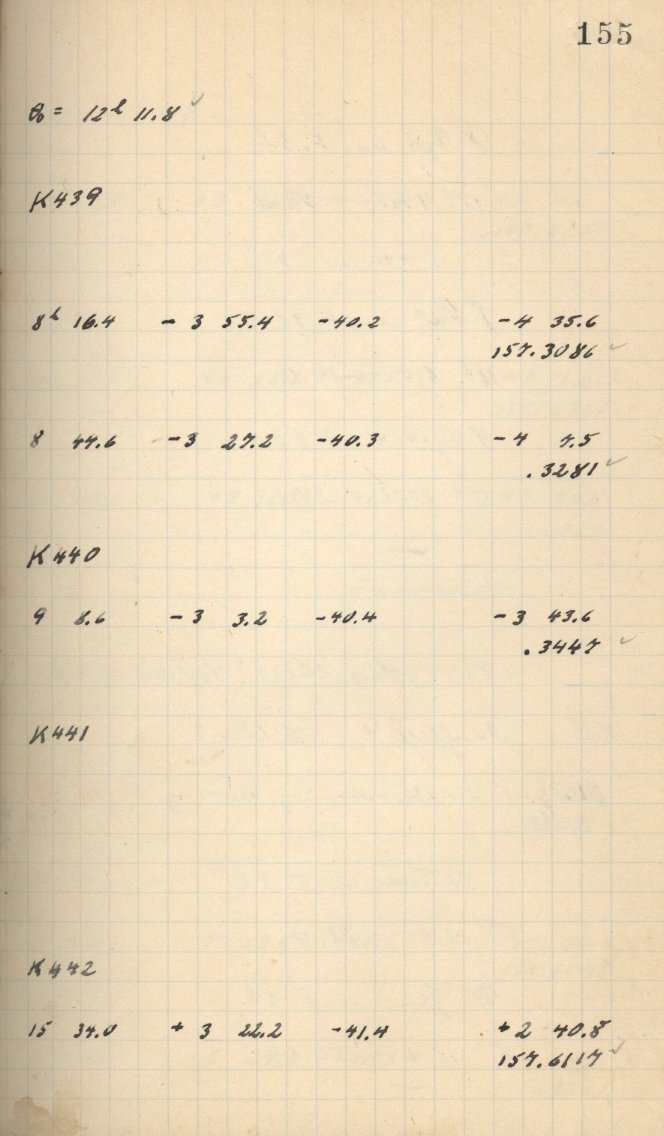 155
θ₀ = 12ʰ 11.8 ✓
K439
8ʰ 16.4 - 3 55.4 -40.2 -4 35.6
157.3086 ✓
8 44.6 -3 27.2 -40.3 -4 7.5
.3281 ✓
K440
9 8.6 -3 3.2 -40.4 -3 43.6
.3447 ✓
K441
K442
15 34.0 + 3 22.2 -41.4 +2 40.8
157.6117 ✓